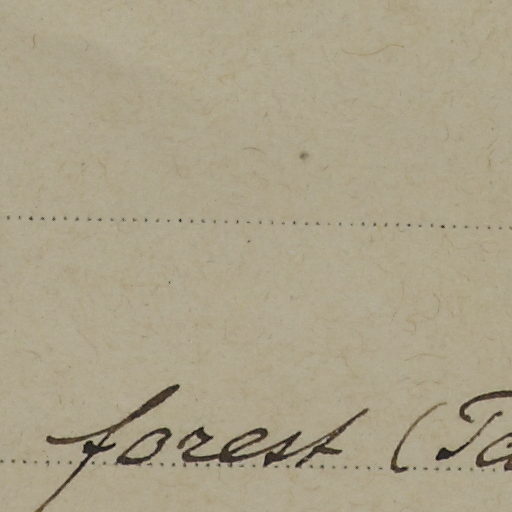 forest (Ta